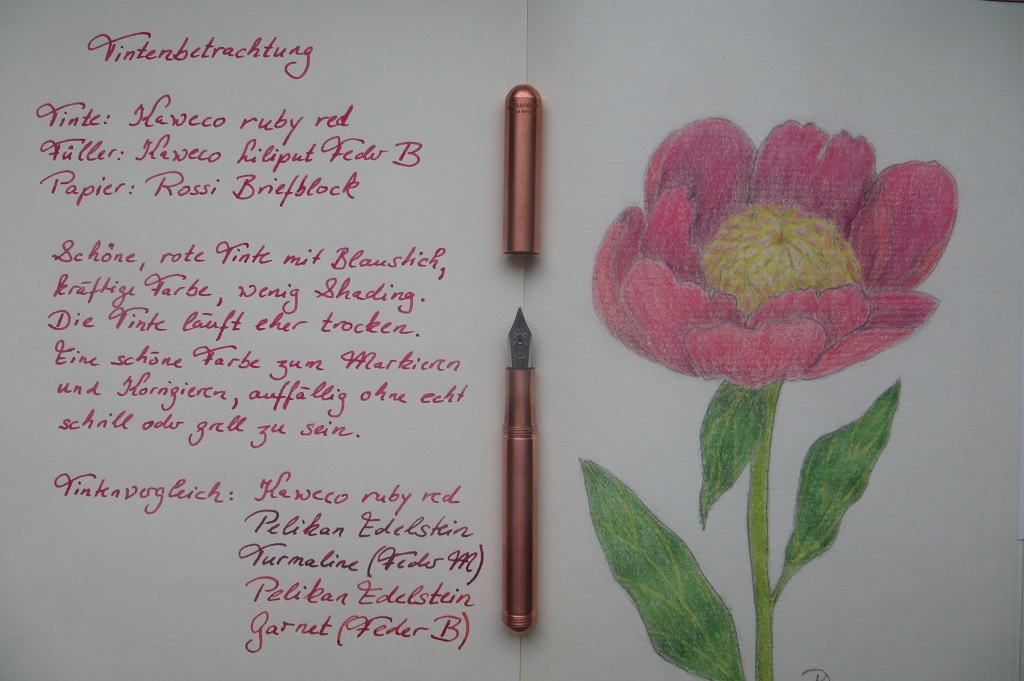 Tintenbetrachtung
Tinte: Kaweco ruby red
Füller: Kaweco Liliput Feder B
Papier: Rossi Briefblock
Schöne, rote Tinte mit Blaustich,
kräftige Farbe, wenig Shading.
Die Tinte läuft eher trocken.
Eine schöne Farbe zum Markieren
und Korrigieren, auffällig ohne echt
schrill oder grell zu sein.
Tintenvergleich: Kaweco ruby red
Pelikan Edelstein
Turmaline (Feder M)
Pelikan Edelstein
Garnet (Feder B)